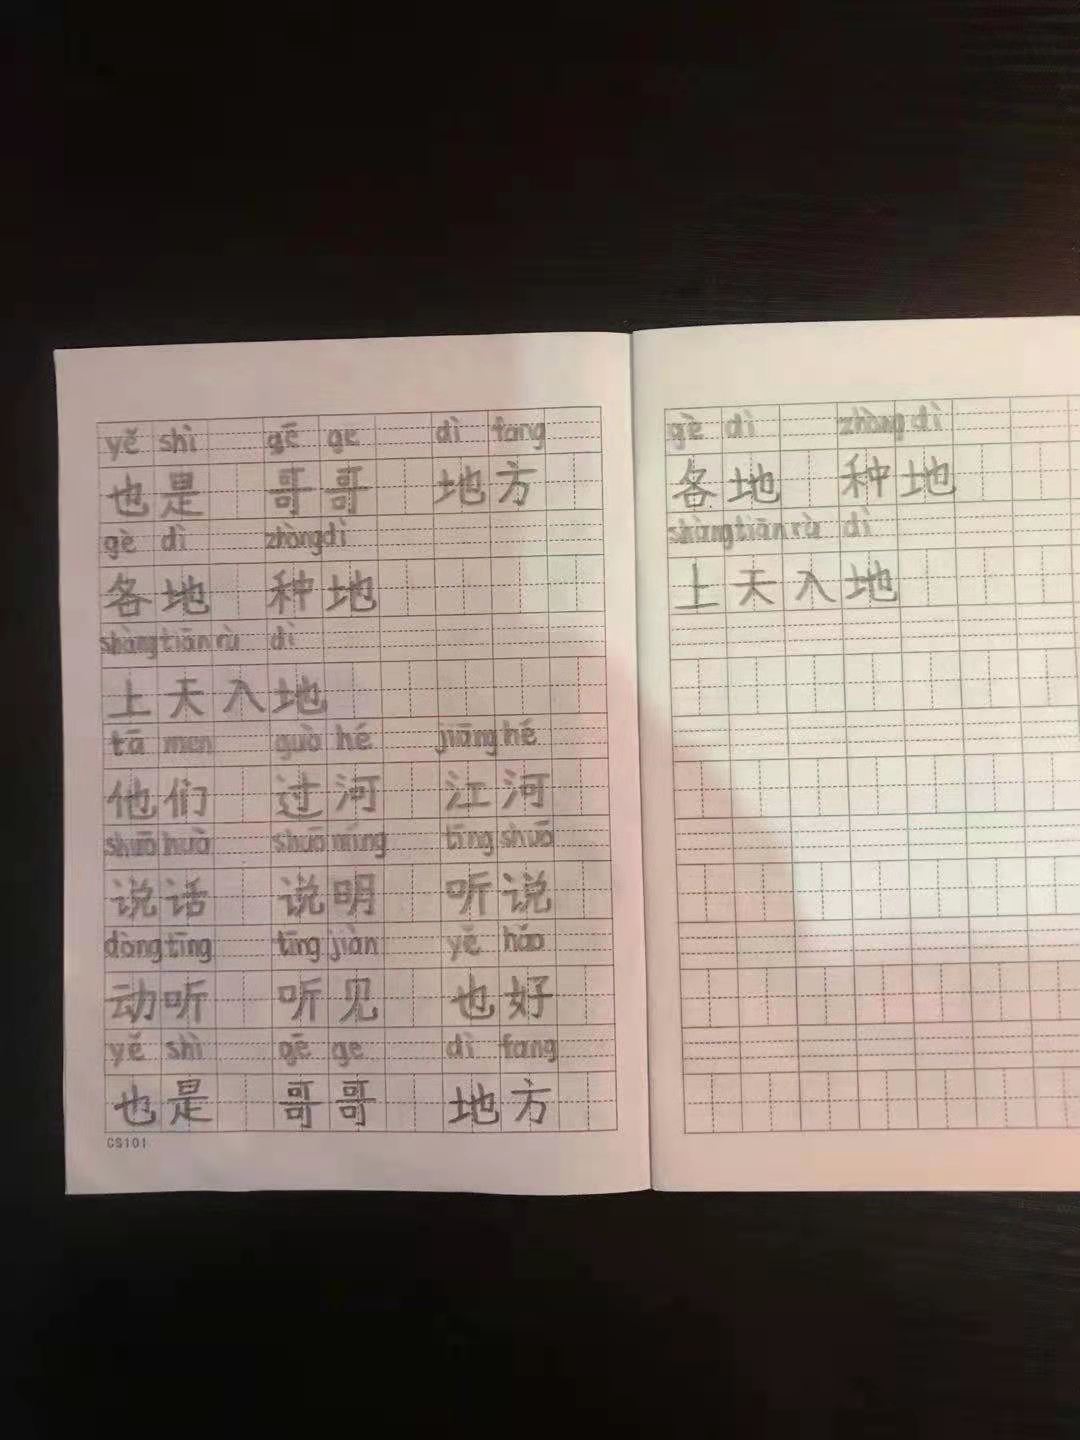 yě shì gē ge dì fang
也是 哥哥 地方
gè dì zhòng dì
各地 种地
shàng tiān rù dì
上天入地
tā men guò hé jiāng hé
他们 过河 江河
shuō huà shuō míng tīng shuō
说话 说明 听说
dòng tīng tīng jiàn yě hǎo
动听 听见 也好
yě shì gē ge dì fang
也是 哥哥 地方
CS101
gè dì zhòng dì
各地 种地
shàng tiān rù dì
上天入地